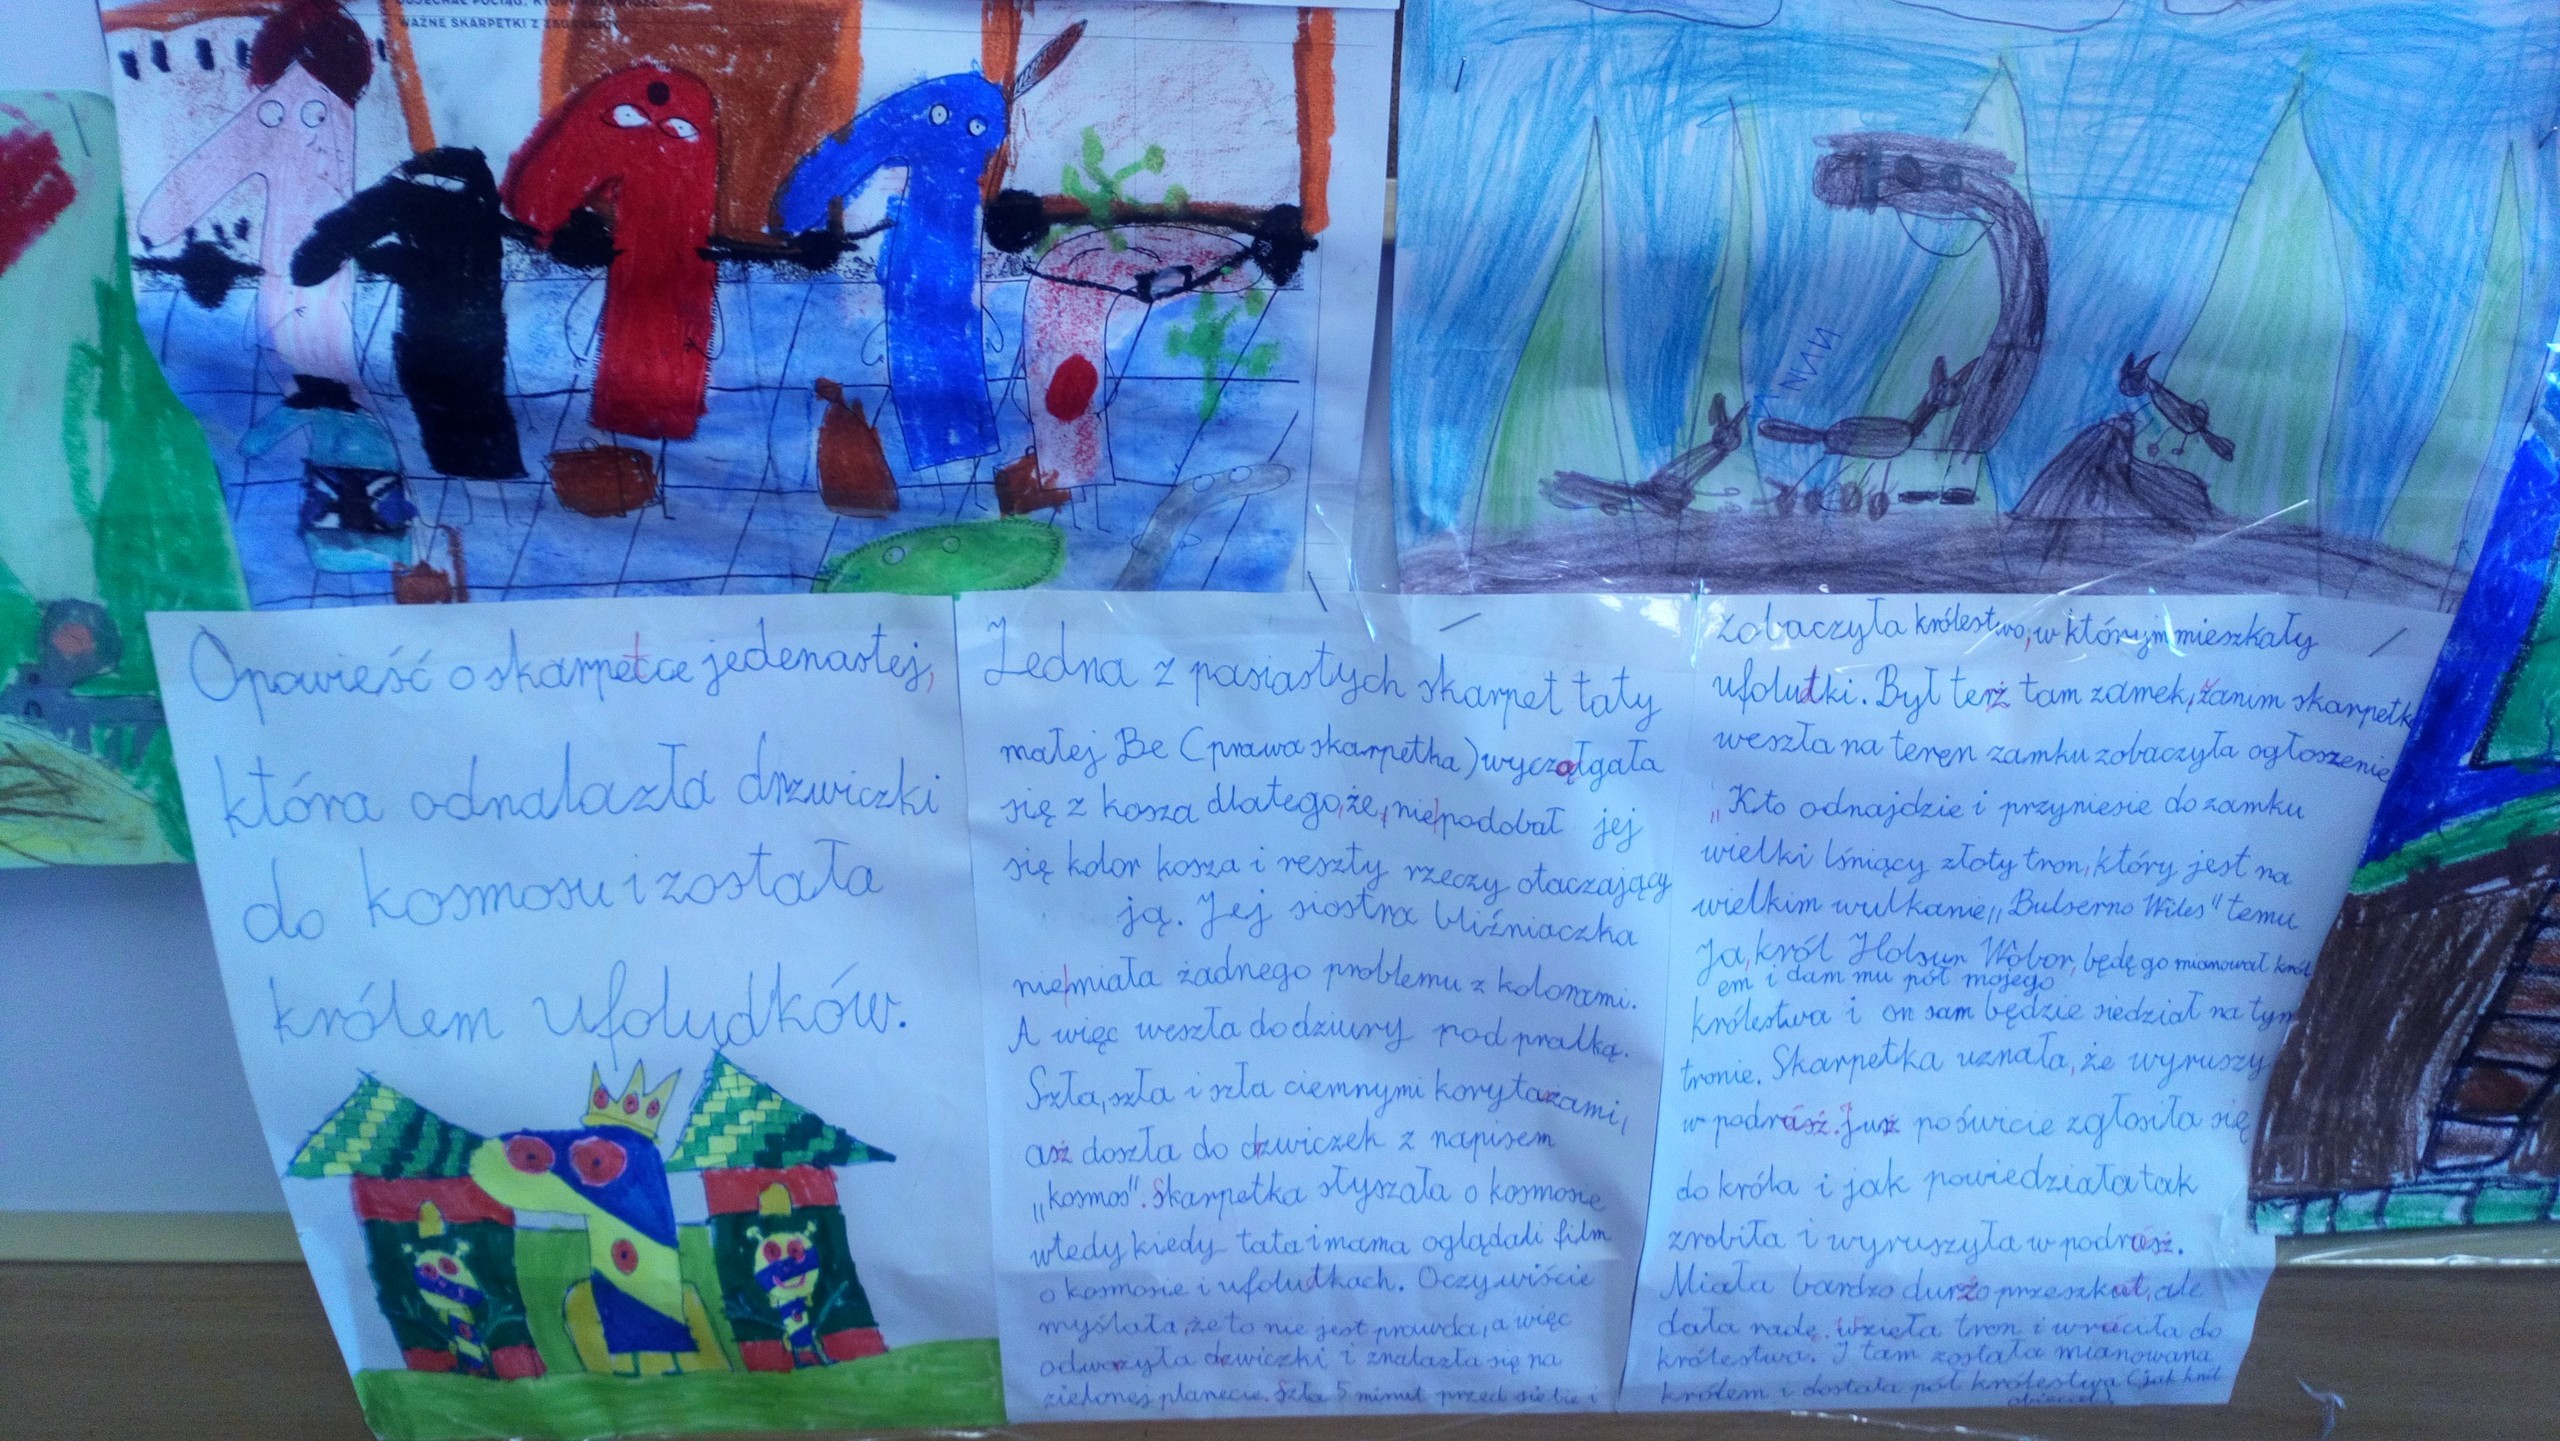 ODJECHAŁ POCIĄG, KTÓRY
WAŻNE SKARPETKI Z ZAGRANICY
Opowieść o skarpetce jedenastej,
która odnalazła drzwiczki
do kosmosu i została
królem ufoludków.
Jedna z pasiastych skarpet taty
małej Be (prawa skarpetka) wyczołgała
się z kosza dlatego, że nie podobał jej
się kolor kosza i reszty rzeczy otaczający
ją. Jej siostra bliźniaczka
nie miała żadnego problemu z kolorami.
A więc weszła do dziury pod pralką.
Szła, szła i szła ciemnymi korytażami,
asż doszła do dzwiczek z napisem
„kosmos". Skarpetka słyszała o kosmosie
wtedy kiedy tata i mama oglądali film
o kosmosie i ufolutkach. Oczywiście
myślała, że to nie jest prawda, a więc
odworzyła dzwiczki i znalazła się na
zielonej planecie. Szła 5 minut przed siebie i
zobaczyła królestwo, w którym mieszkały
ufolutki. Był terż tam zamek, zanim skarpetka
weszła na teren zamku zobaczyła ogłoszenie
„Kto odnajdzie i przyniesie do zamku
wielki lśniący złoty tron, który jest na
wielkim wulkanie „Bulserno Wiles" temu
Ja, król Holsur Wobor, będę go mianował król
em i dam mu pół mojego
królestwa i on sam będzie siedział na tym
tronie. Skarpetka uznała, że wyruszy
w podrásż. Jusż po świcie zgłosiła się
do króla i jak powiedziała tak
zrobiła i wyruszyła w podrósż.
Miała bardzo durżo przeszkut, ale
dała radę. Wzieła tron i wróciła do
królestwa. I tam została mianowana
królem i dostała pół królestwa (jak król
obiecał)